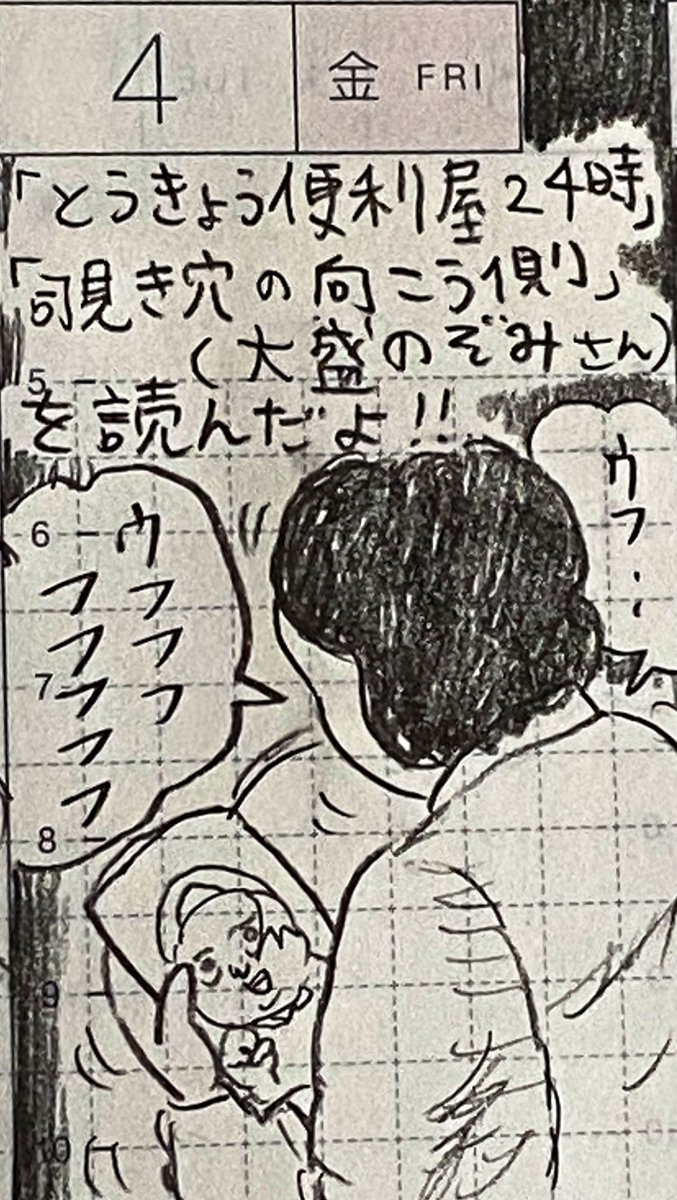 4
金 FRI
「とうきょう便利屋24時」
「覗き穴の向こう側」
(大盛のぞみさん)
を読んだよ!!
5
6
7
8
9
10
ウフフフ
フフフフフ
ウフ..フ